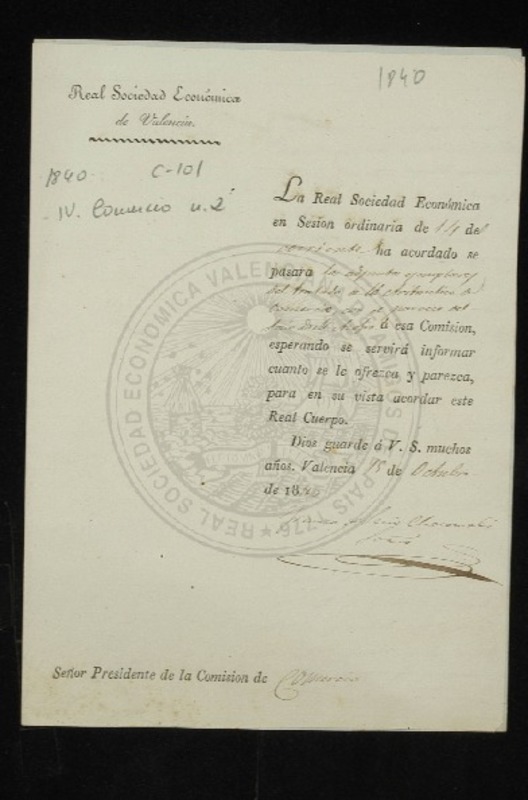 1840
Real Sociedad Económica
de Valencia.
1840 C-101
IV. Comercio n. 2
La Real Sociedad Económica
en Sesion ordinaria de 14 del
corriente ha acordado se
pasara los adjuntos ejemplares
del tratado
á esa Comision,
esperando se servirá informar
cuanto se le ofrezca y parezca,
para en su vista acordar este
Real Cuerpo.
Dios guarde á V. S. muchos
años. Valencia 15 de Octubre
de 1840
Señor Presidente de la Comision de Comercio
REAL SOCIEDAD ECONOMICA VALENCIANA DE AMIGOS DEL PAIS 1776